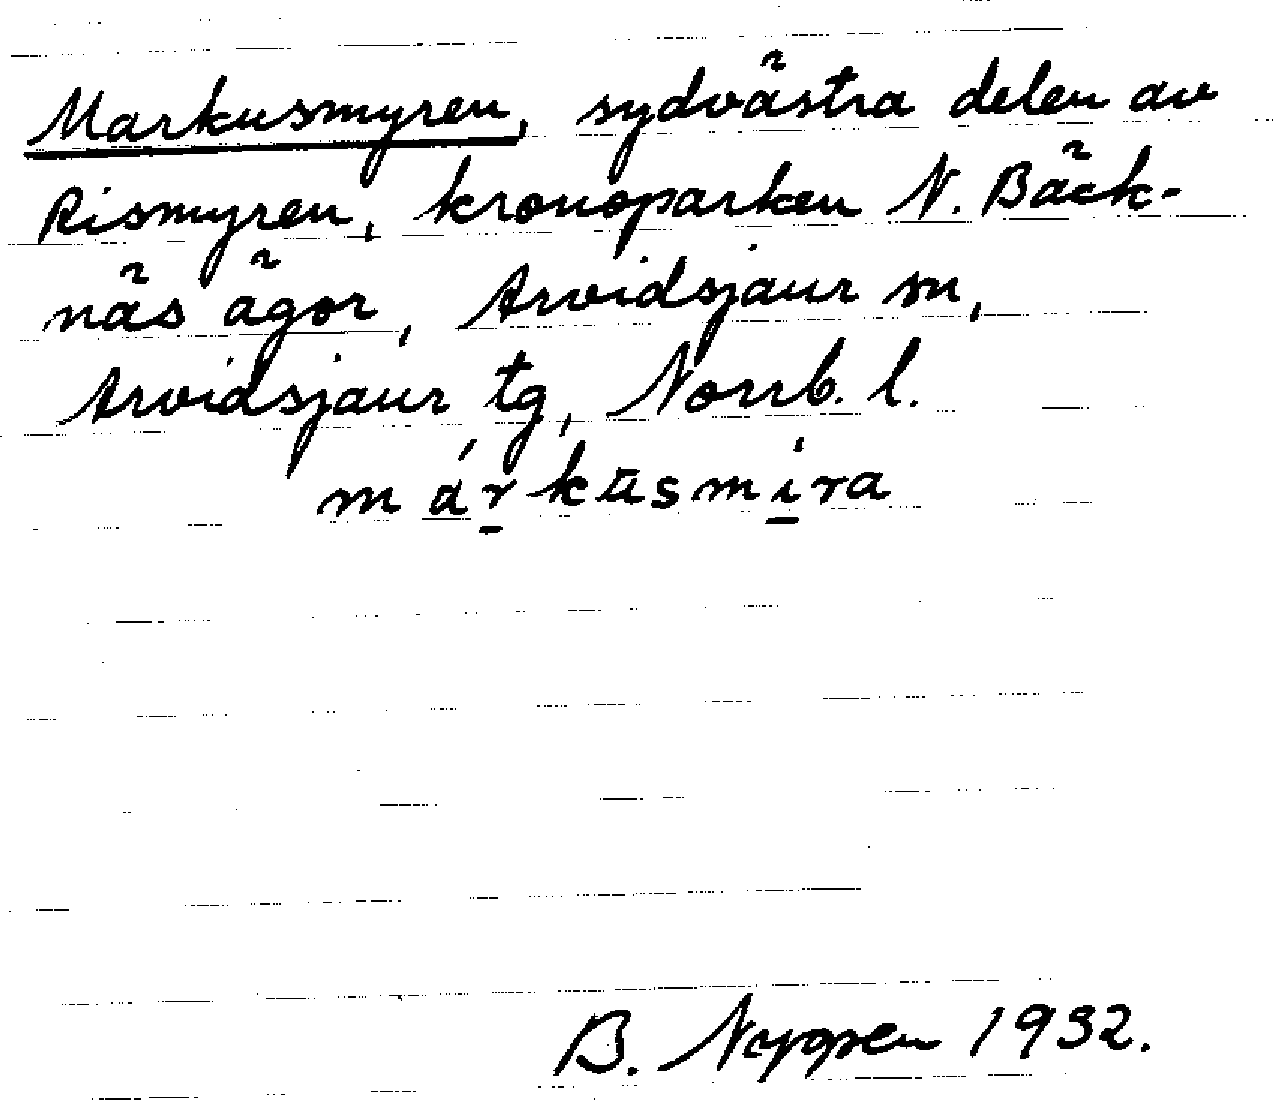 Markusmyren, sydvästra delen av
Rismyren, kronoparken N. Bäck-
näs ägor, Arvidsjaur sn,
Arvidsjaur tg, Norrb. l.
márkusmira
B. Nyppen 1932.